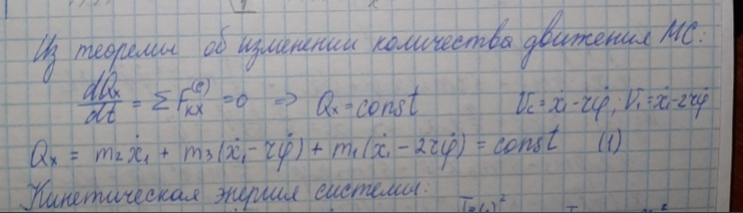 Из теоремы об изменении количества движения МС:
dQx/dt = ΣFкх^(e) = 0 => Qx = const Vc = ẋ₁ - rφ̇; V₁ = ẋ₁ - 2rφ̇
Qx = m₂ẋ₁ + m₃(ẋ₁ - rφ̇) + m₁(ẋ₁ - 2rφ̇) = const (1)
Кинетическая энергия системы: